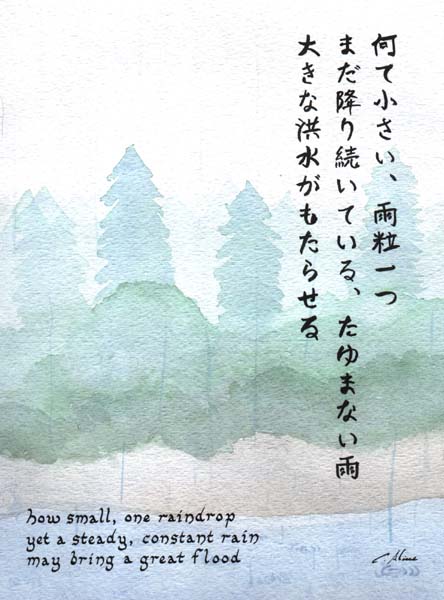 何て小さい、雨粒一つ
まだ降り続いている、たゆまない雨
大きな洪水がもたらせる
how small, one raindrop
yet a steady, constant rain
may bring a great flood